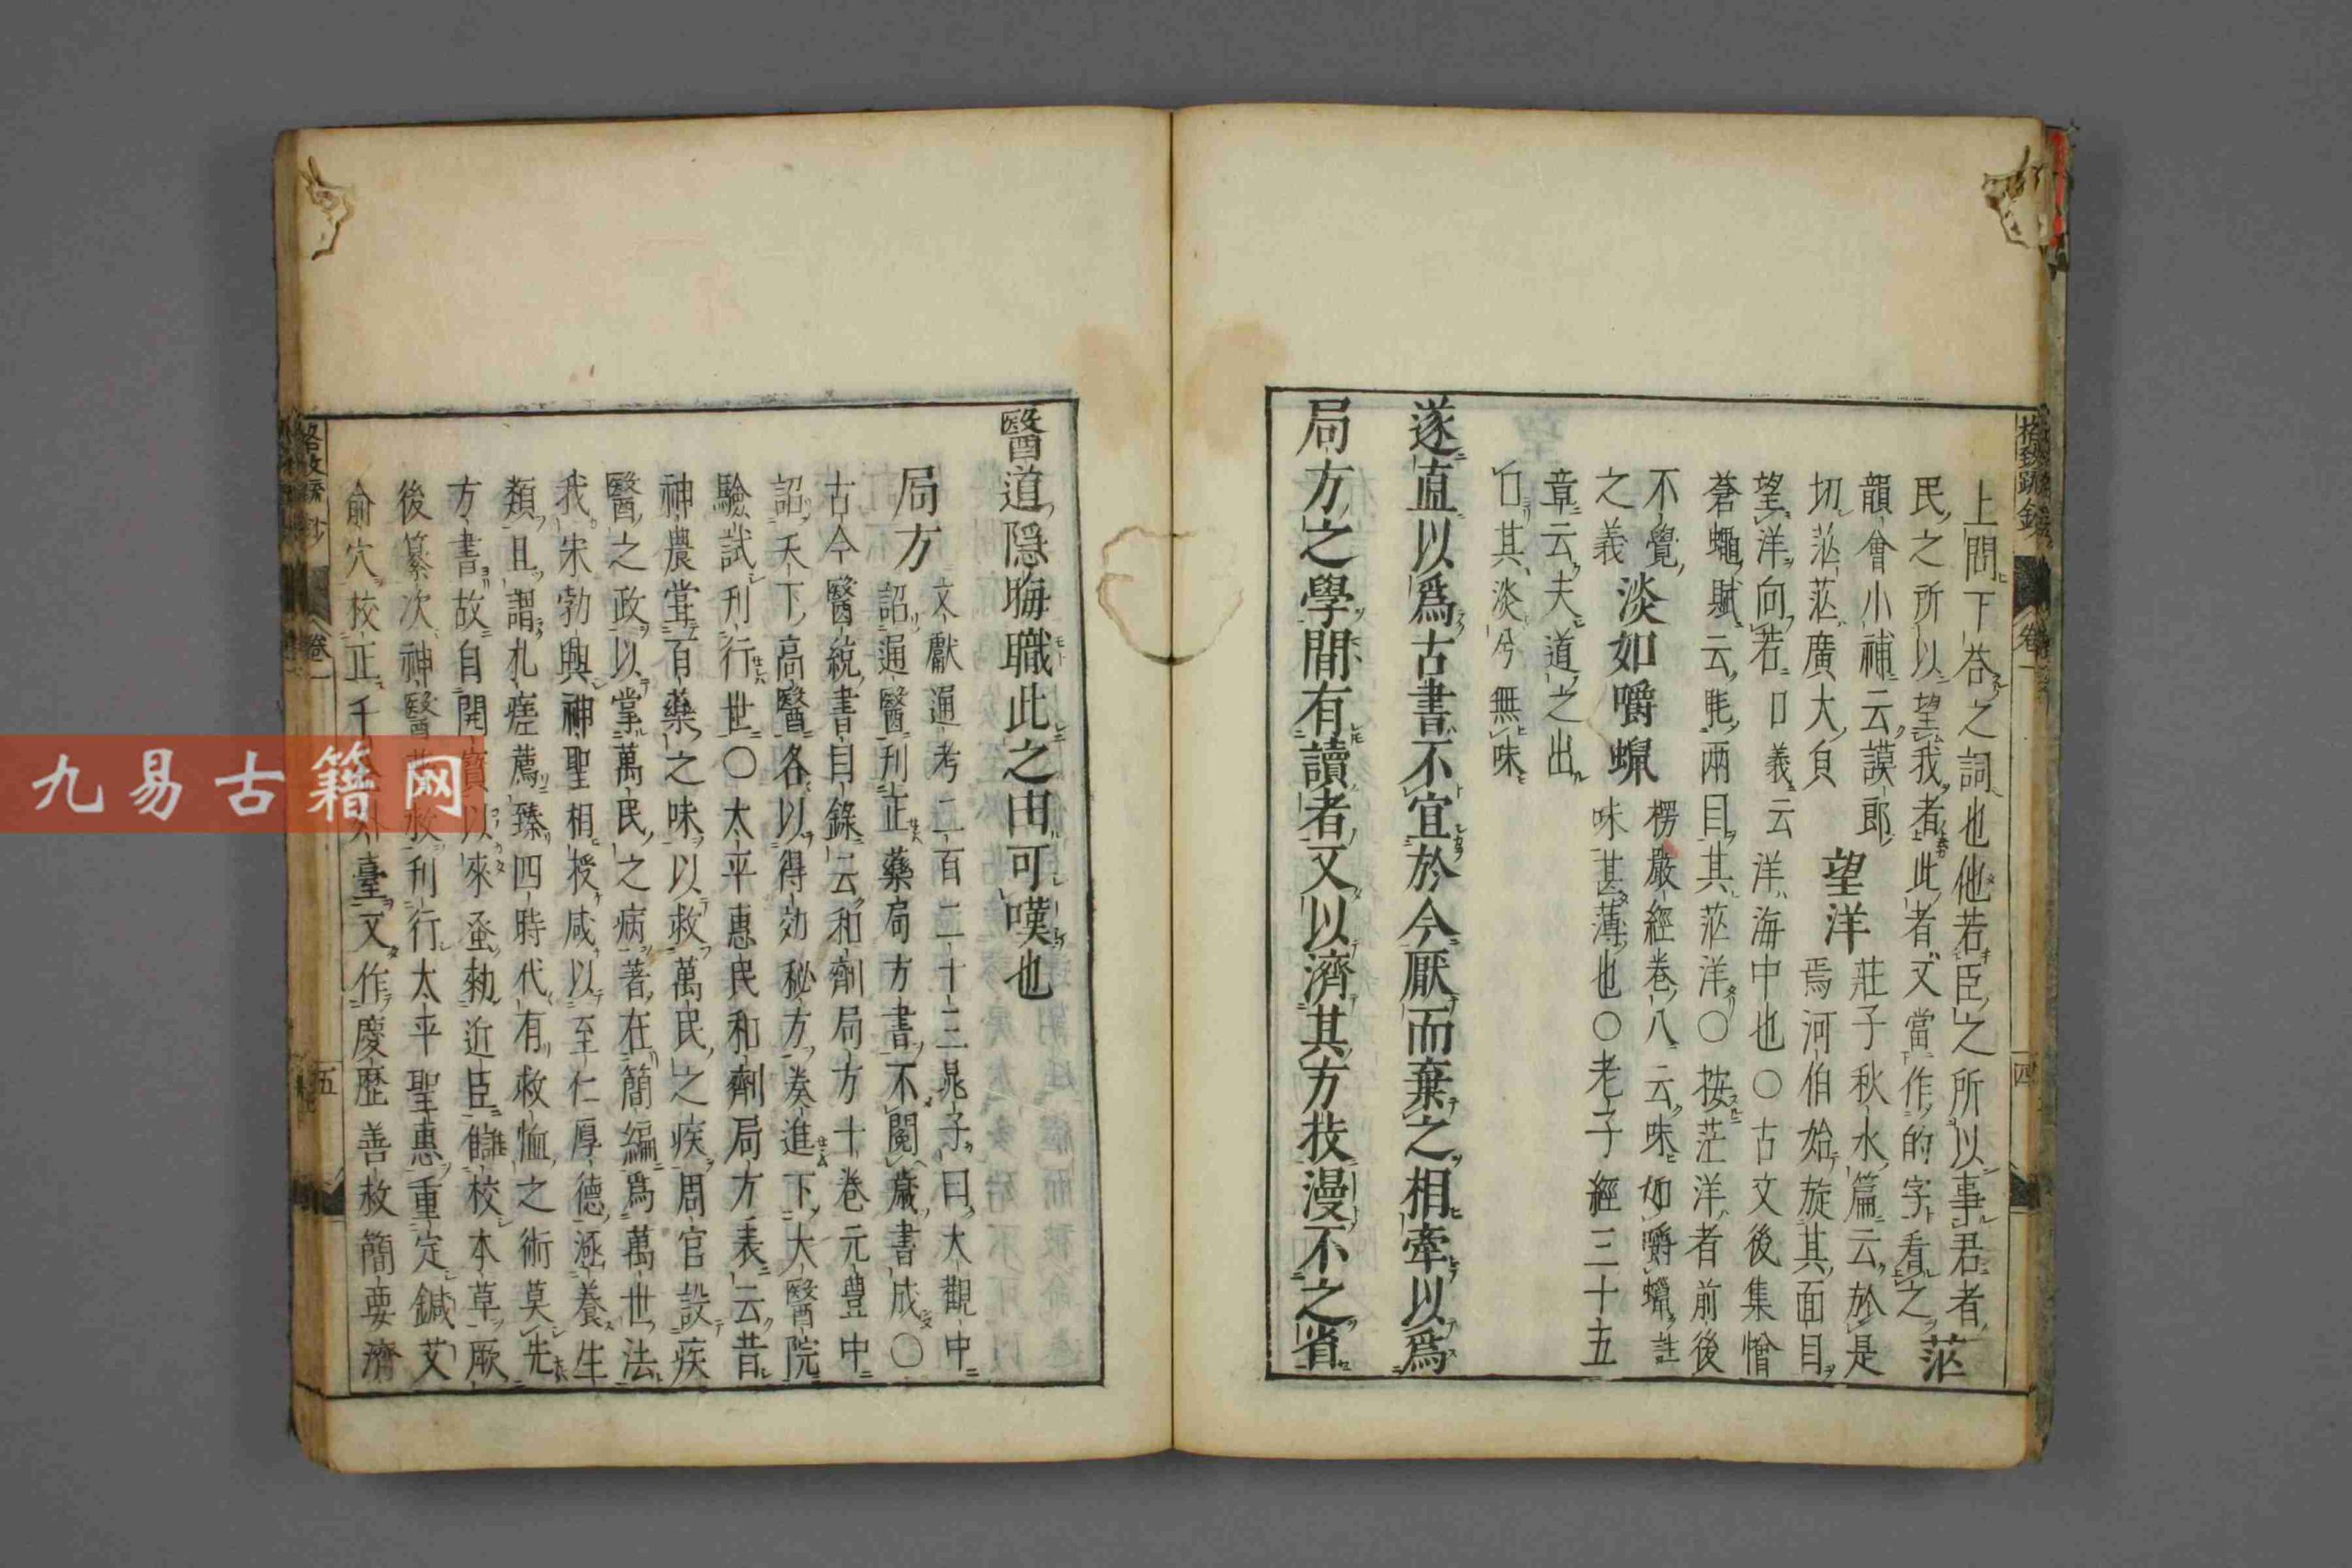 上問下荅之詞也他若臣之所以事君者
民之所以望我者此者又當作的字看之茫
韻會小補云謨郎
切茫茫廣大貟
望洋
莊子秋水篇云於是
焉河伯始旋其面目
望洋向若口義云洋海中也〇古文後集憎
蒼蠅賦云眊兩目其茫洋〇按茫洋者前後
不覺
之義
淡如嚼蠟
楞嚴經卷八云味如嚼蠟註
味甚薄也〇老子經三十五
章云夫道之出
口其淡兮無味
遂直以爲古書不宜於今厭而棄之相牽以爲
局方之學間有讀者又以濟其方技漫不之省
醫道隱晦職此之由可嘆也
局方
文獻通考二百二十三晁子曰大觀中
詔通醫刊正藥局方書不閱歲書成〇
古今醫統書目錄云和劑局方十卷元豊中
詔天下高醫各以得効秘方奏進下大醫院
驗試刊行世〇太平惠民和劑局方表云昔
神農甞百藥之味以救萬民之疾周官設疾
醫之政以掌萬民之病著在簡編爲萬世法
我宋勃興神聖相授咸以至仁厚德涵養生
類且謂札瘥薦臻四時代有救恤之術莫先
方書故自開寶以來蚤勑近臣讎校本草厥
後纂次神醫救刊行太平聖惠重定鍼艾
俞穴校正千外臺又作慶歷善救簡要濟
格致餘鈔
卷一
四
五
九易古籍网